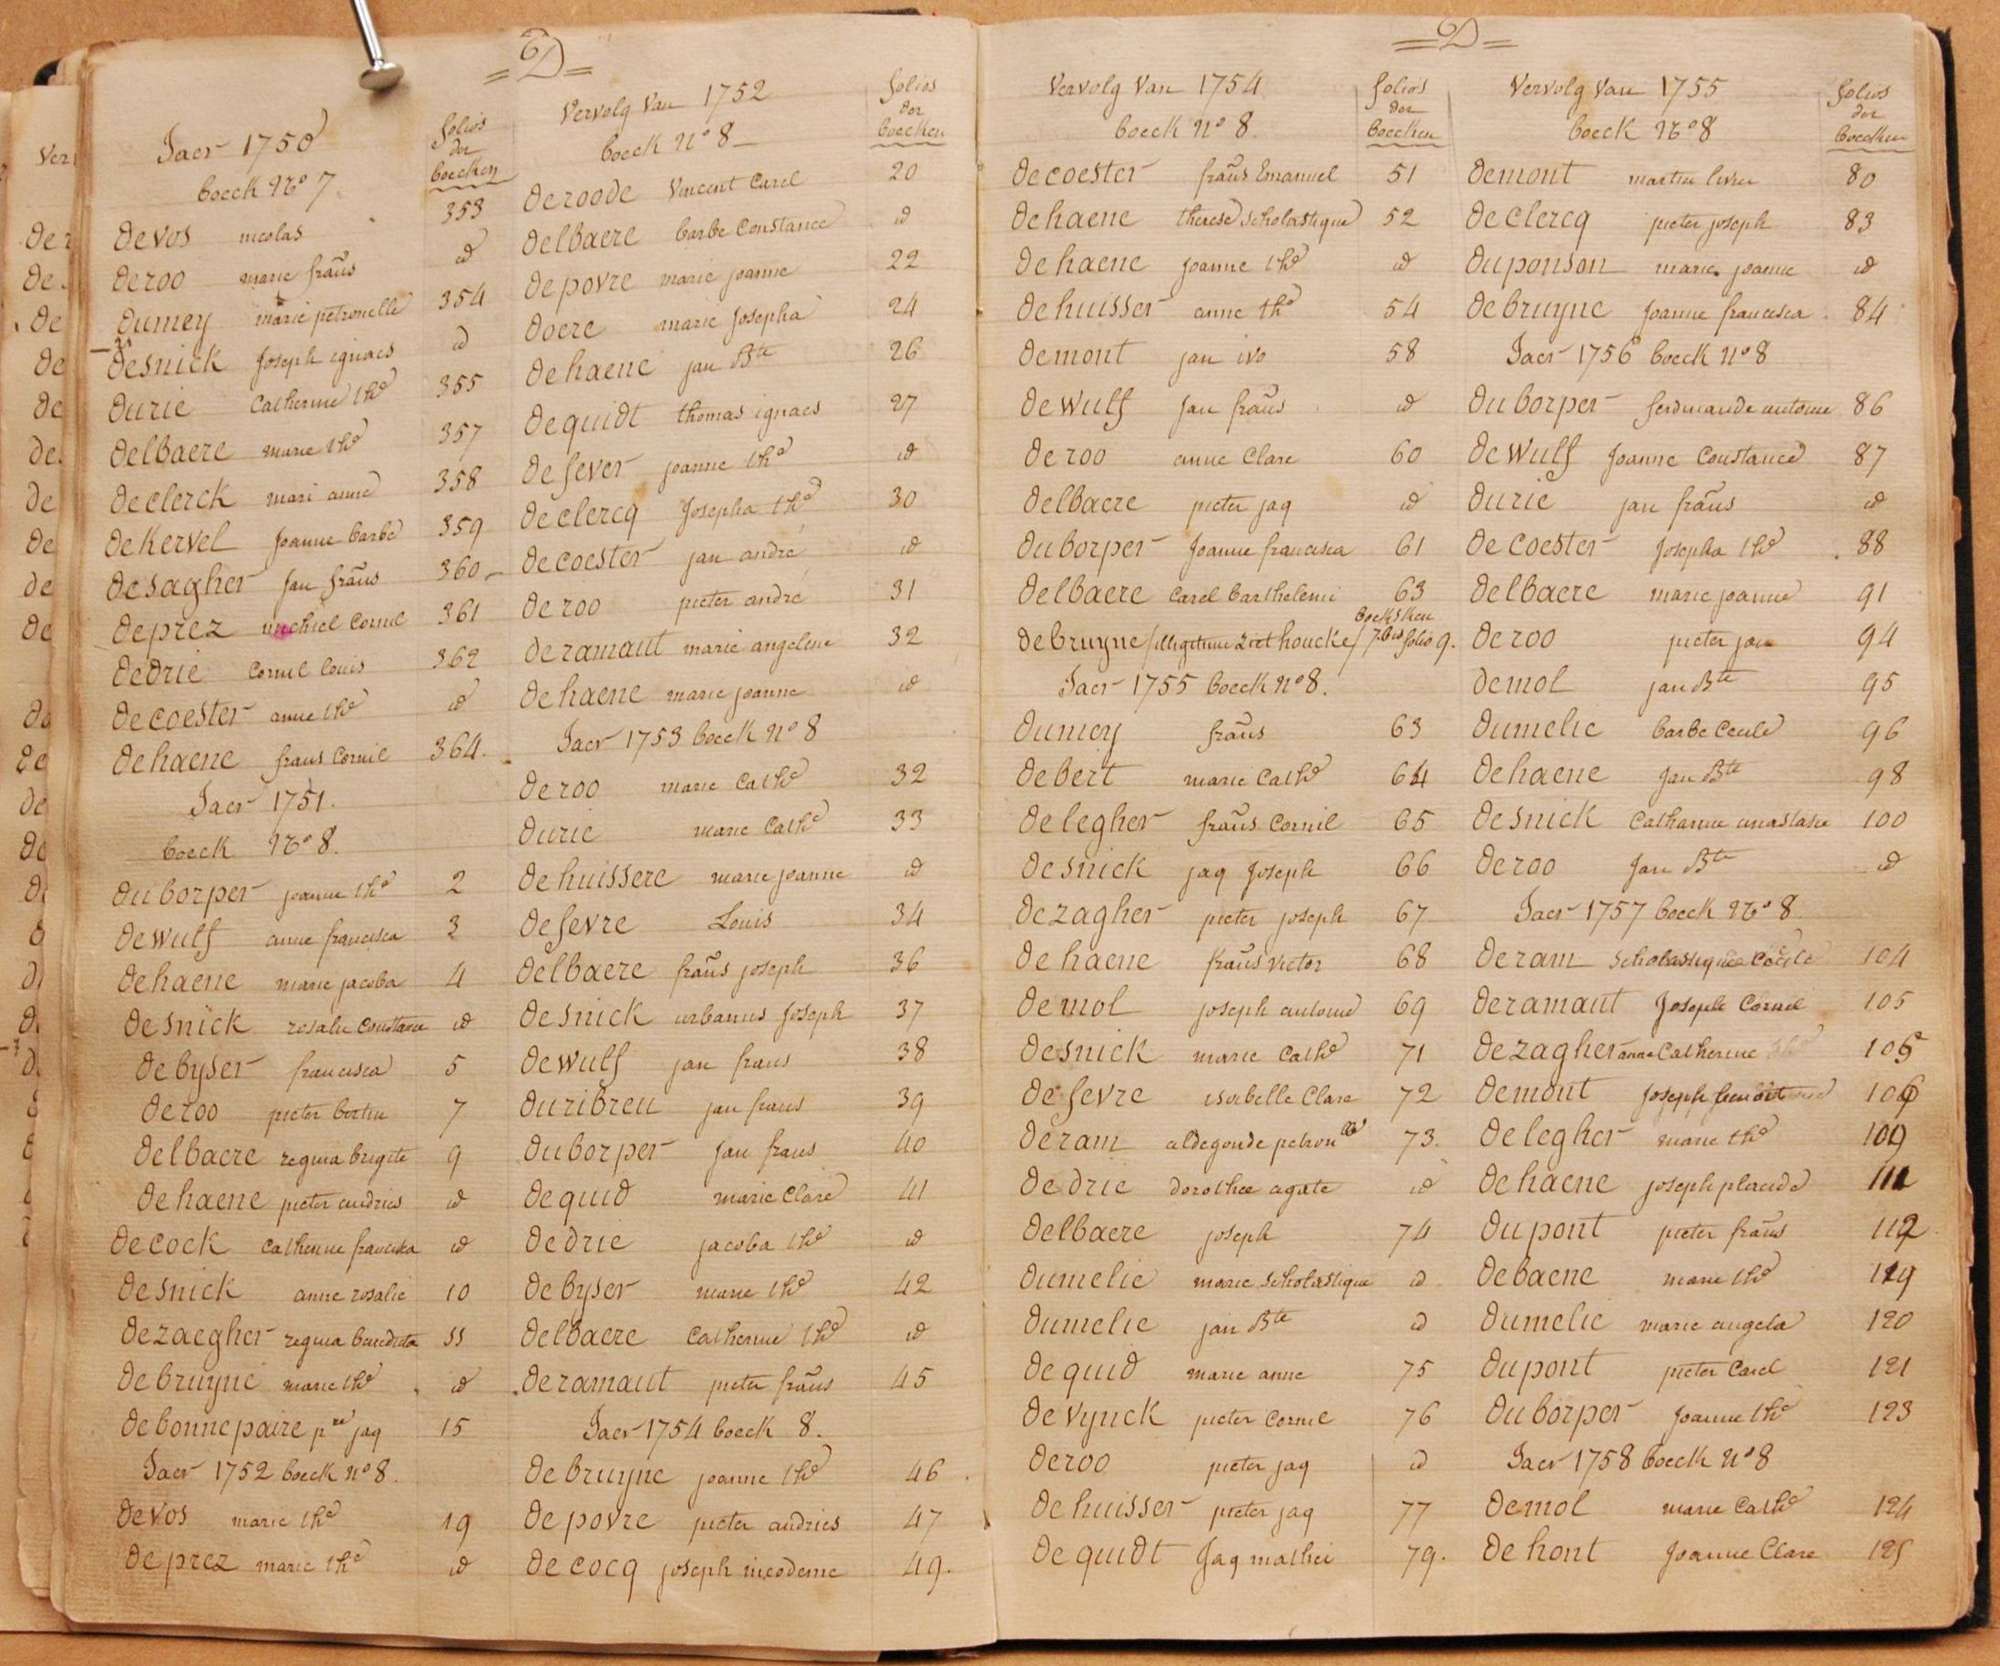 D
Jaer 1750
boeck No 7
folios
der
boecken
devos nicolas 353
deroo marie frans id
dumey marie petronelle 354
desnick Joseph ignaes id
durie Catherine the 355
delbaere marie the 357
declerck mari anne 358
dekervel Joanne barbe 359
desagher Jan frans 360
deprez michiel Cornil 361
dedrie Cornil louis 362
decoester anne the id
dehaene frans Cornil 364.
Jaer 1751.
boeck No 8.
duborper joanne the 2
dewulf anne francisca 3
dehaene marie jacoba 4
desnick rosalie Constance id
debyser francisca 5
deroo pieter bertin 7
delbaere regina brigite 9
dehaene pieter andries id
decock Catherine francisca id
desnick anne rosalie 10
dezaegher regina benedicta 11
debruyne marie the id
debonnepaire pre jaq 15
Jaer 1752 boeck No 8.
devos marie the 19
deprez marie the id
Vervolg Van 1752
boeck No 8
folios
der
boecken
deroode Vincent Carel 20
delbaere barbe Constance id
depovre marie joanne 22
doere marie Josepha 24
dehaene jan Bte 26
dequidt thomas ignaes 27
defever joanne the id
declercq Josepha the 30
decoester jan andré id
deroo pieter andré 31
deramaut marie angeline 32
dehaene marie joanne id
Jaer 1753 boeck No 8
deroo marie Cathe 32
durie marie Cathe 33
dehuissere marie joanne id
defevre Louis 34
delbaere frans joseph 36
desnick urbanus Joseph 37
dewulf jan frans 38
duribreu jan frans 39
duborper Jan frans 40
dequid marie Clare 41
dedrie jacoba the id
debyser marie the 42
delbaere Catherine the id
deramaut pieter frans 45
Jaer 1754 boeck 8.
debruyne joanne the 46
depovre pieter andries 47
decocq joseph nicodeme 49.
D
Vervolg Van 1754
boeck No 8.
folios
der
boecken
decoester frans Emanuel 51
dehaene therese scholastique 52
dehaene Joanne the id
dehuisser anne the 54
demont jan ivo 58
dewulf Jan frans id
deroo anne Clare 60
delbaere pieter jaq id
duborper Joanne francisca 61
delbaere Carel barthelemi 63
debruyne / illegitime Ziet houcke / boeksken 7.bis folio 9.
Jaer 1755 boeck No 8.
dumey frans 63
debert marie Cathe 64
delegher frans Cornil 65
desnick jaq Joseph 66
dezagher pieter joseph 67
dehaene frans victor 68
demol joseph antoine 69
desnick marie Cathe 71
defevre isabelle Clare 72
deram aldegonde petronlle 73.
dedrie dorothee agate id
delbaere joseph 74
dumelie marie scholastique id
dumelie jan Bte id
dequid marie anne 75
devynck pieter Cornil 76
deroo pieter jaq id
dehuisser pieter jaq 77
dequidt Jaq mathei 79.
Vervolg Van 1755
boeck No 8
folios
der
boecken
demont martin livin 80
declercq pieter joseph 83
duponson marie joanne id
debruyne Joanne francisca 84
Jaer 1756 boeck No 8
duborper ferdinande antoine 86
dewulf Joanne Constance 87
durie jan frans id
decoester Josepha the 88
delbaere marie joanne 91
deroo pieter jan 94
demol jan Bte 95
dumelie barbe Cecile 96
dehaene Jan Bte 98
desnick Catharine anastasie 100
deroo Jan Bte id
Jaer 1757 boeck No 8.
deram Scholastique Cecile 104
deramaut Joseph Cornil 105
dezagher anne Catherine 105
demont Joseph 106
delegher marie the 109
dehaene joseph placide 111
dupont pieter frans 112
debaene marie the 119
dumelie marie angela 120
dupont pieter Carel 121
duborper Joanne the 123
Jaer 1758 boeck No 8
demol marie Cathe 124
dehont Joanne Clare 125